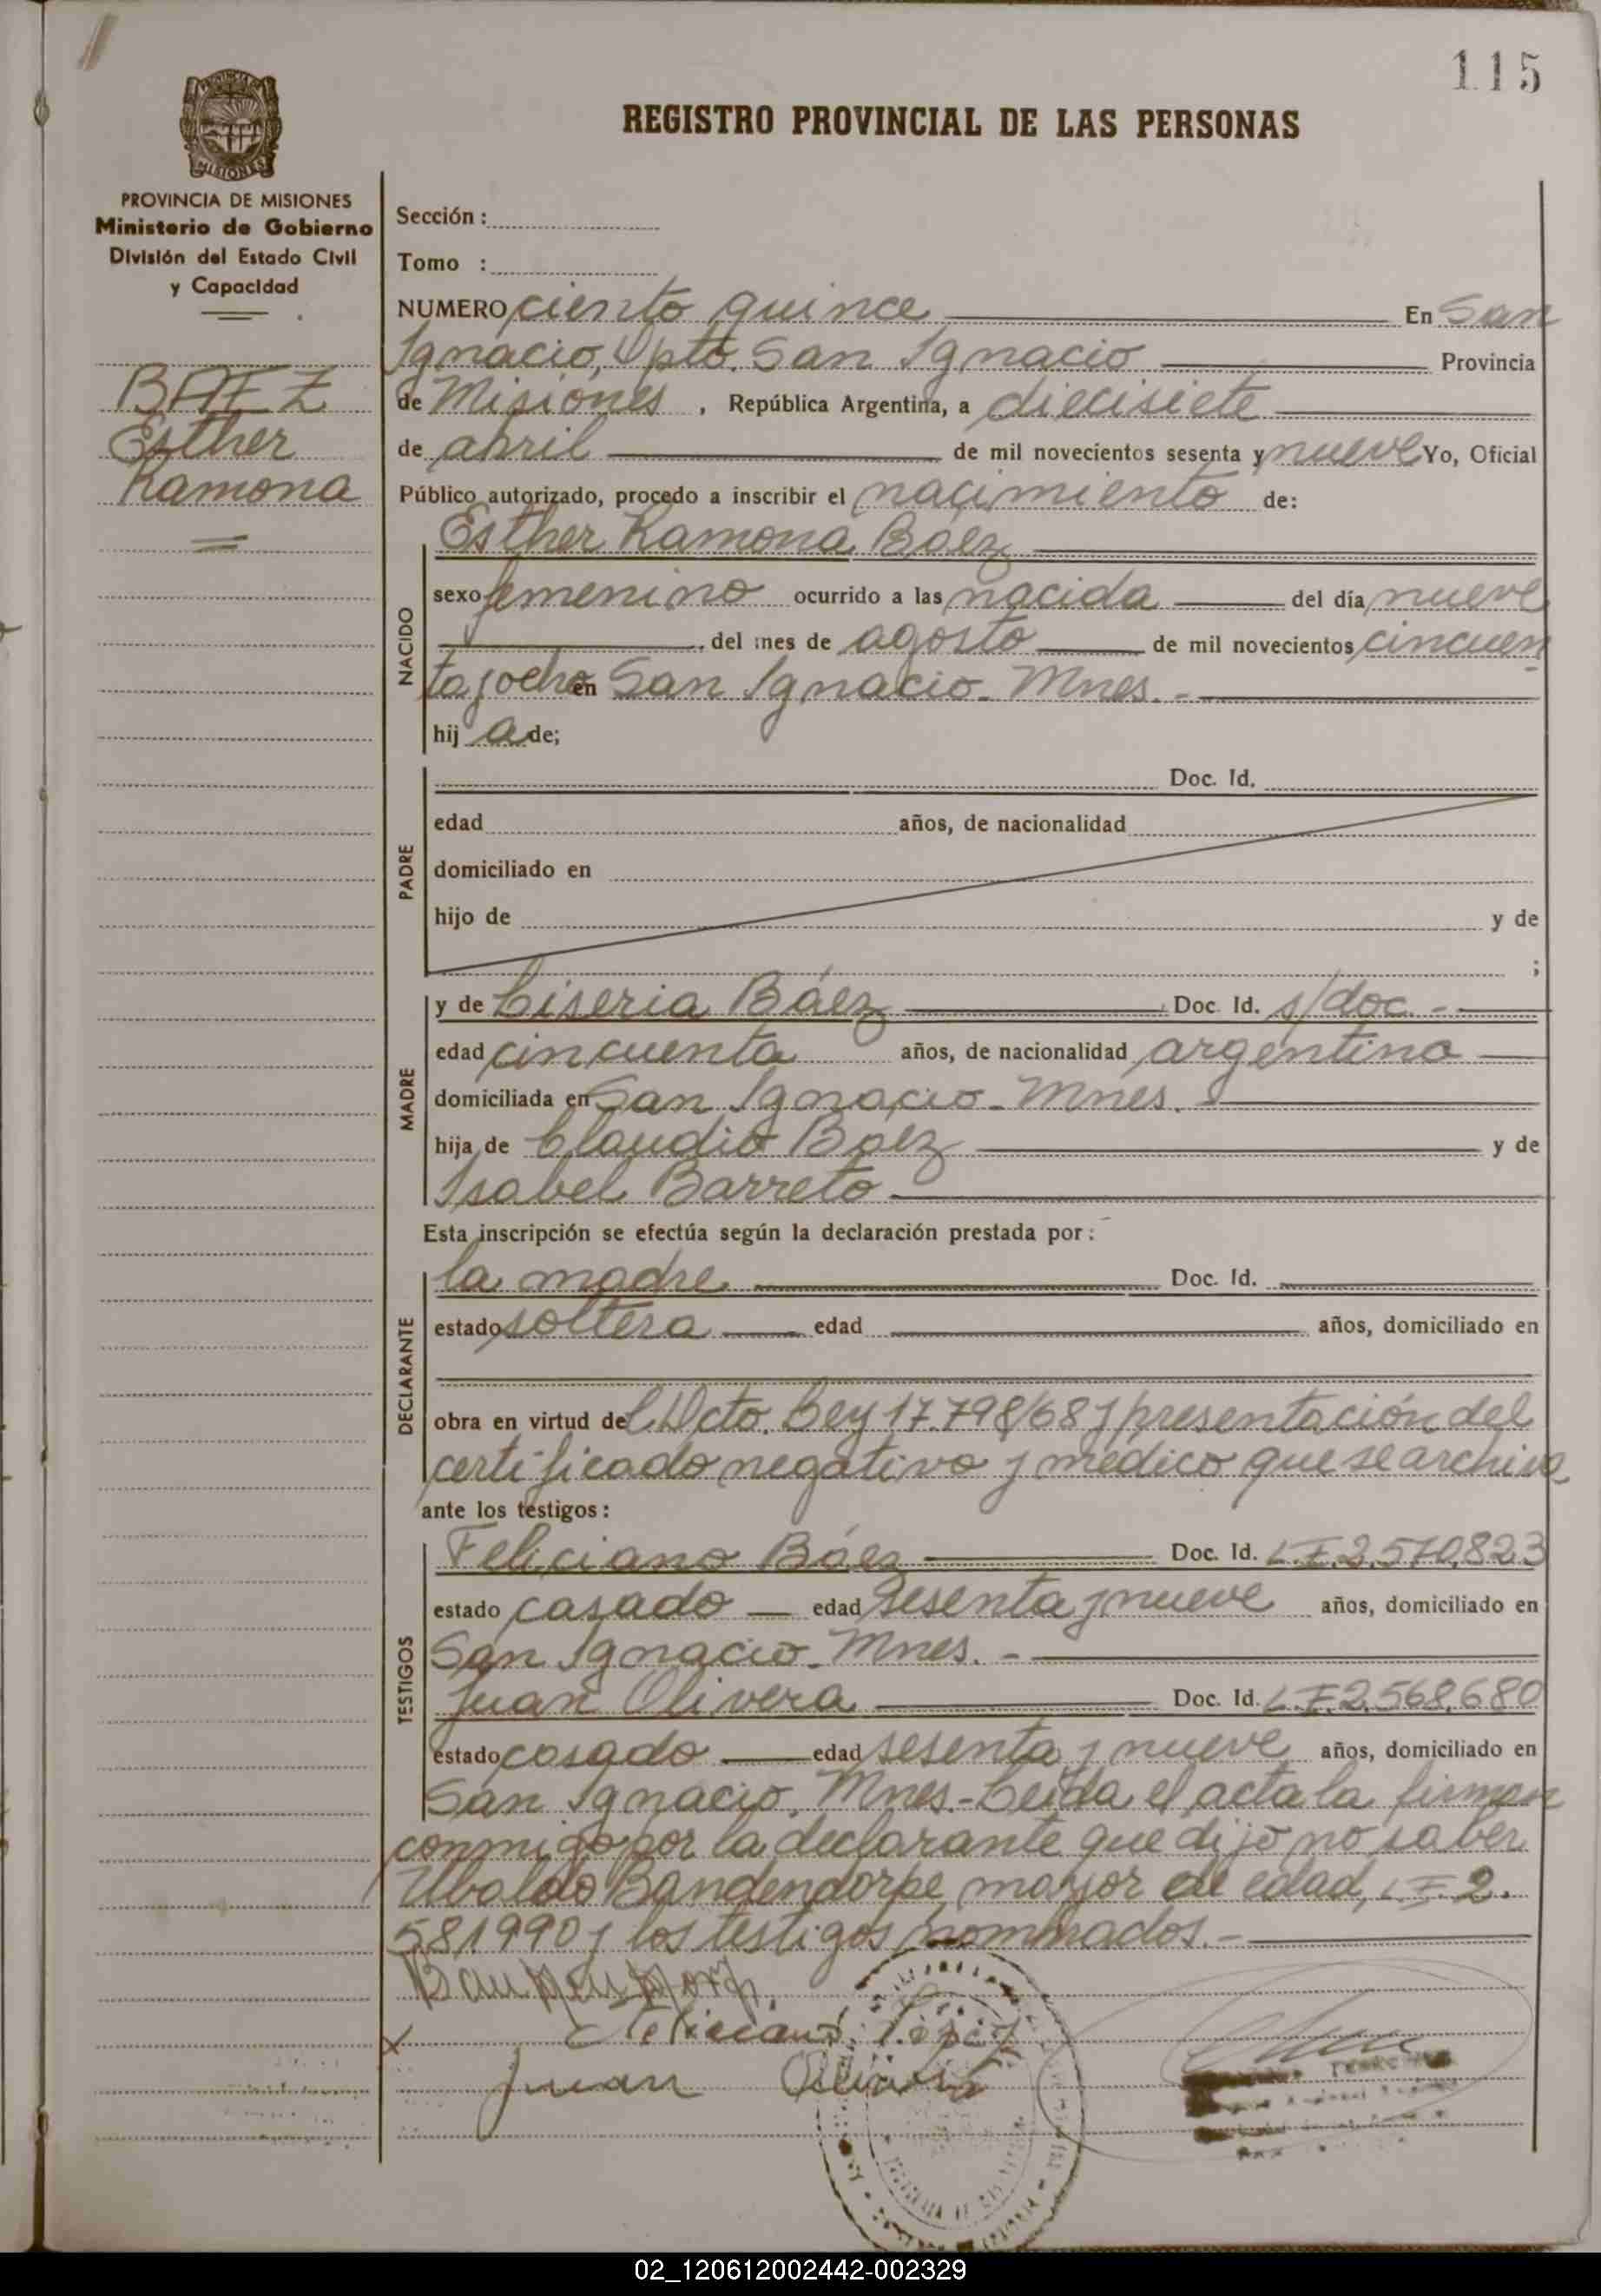 115
REGISTRO PROVINCIAL DE LAS PERSONAS
PROVINCIA DE MISIONES
Ministerio de Gobierno
División del Estado Civil
y Capacidad
BAEZ
Esther
Ramona
Sección :
Tomo :
NUMERO ciento quince En San
Ignacio, Dpto. San Ignacio Provincia
de Misiones , República Argentina, a diecisiete
de abril de mil novecientos sesenta y nueve Yo, Oficial
Público autorizado, procedo a inscribir el nacimiento de:
Esther Ramona Báez
NACIDO
sexo femenino ocurrido a las nacida del día nueve
del mes de agosto de mil novecientos cincuen
ta y ocho en San Ignacio - Mnes. -
hij a de;
PADRE
Doc. Id.
edad años, de nacionalidad
domiciliado en
hijo de y de
;
MADRE
y de Ciseria Báez Doc. Id. s/doc. -
edad cincuenta años, de nacionalidad argentina
domiciliada en San Ignacio - Mnes.
hija de Claudio Báez y de
Isabel Barreto
Esta inscripción se efectúa según la declaración prestada por :
DECLARANTE
la madre Doc. Id.
estado soltera edad años, domiciliado en
obra en virtud del Dcto. Ley 17.798/68 y presentación del
certificado negativo y médico que se archiva
ante los testigos :
TESTIGOS
Feliciano Báez Doc. Id. L.E. 2.570.823
estado casado edad sesenta y nueve años, domiciliado en
San Ignacio - Mnes. -
Juan Olivera Doc. Id. L.E. 2.568.680
estado casado edad sesenta y nueve años, domiciliado en
San Ignacio, Mnes. - Leída el acta la firman
conmigo por la declarante que dijo no saber
Ubaldo Bandendorpe, mayor de edad, L.E. 2.
581990 y los testigos nombrados. -
Juan Olivera
02_120612002442-002329